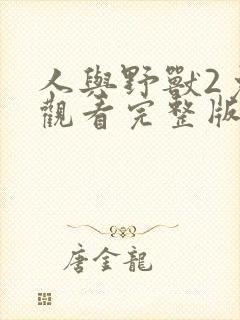 人與野獸2
觀看完整版
唐金龍